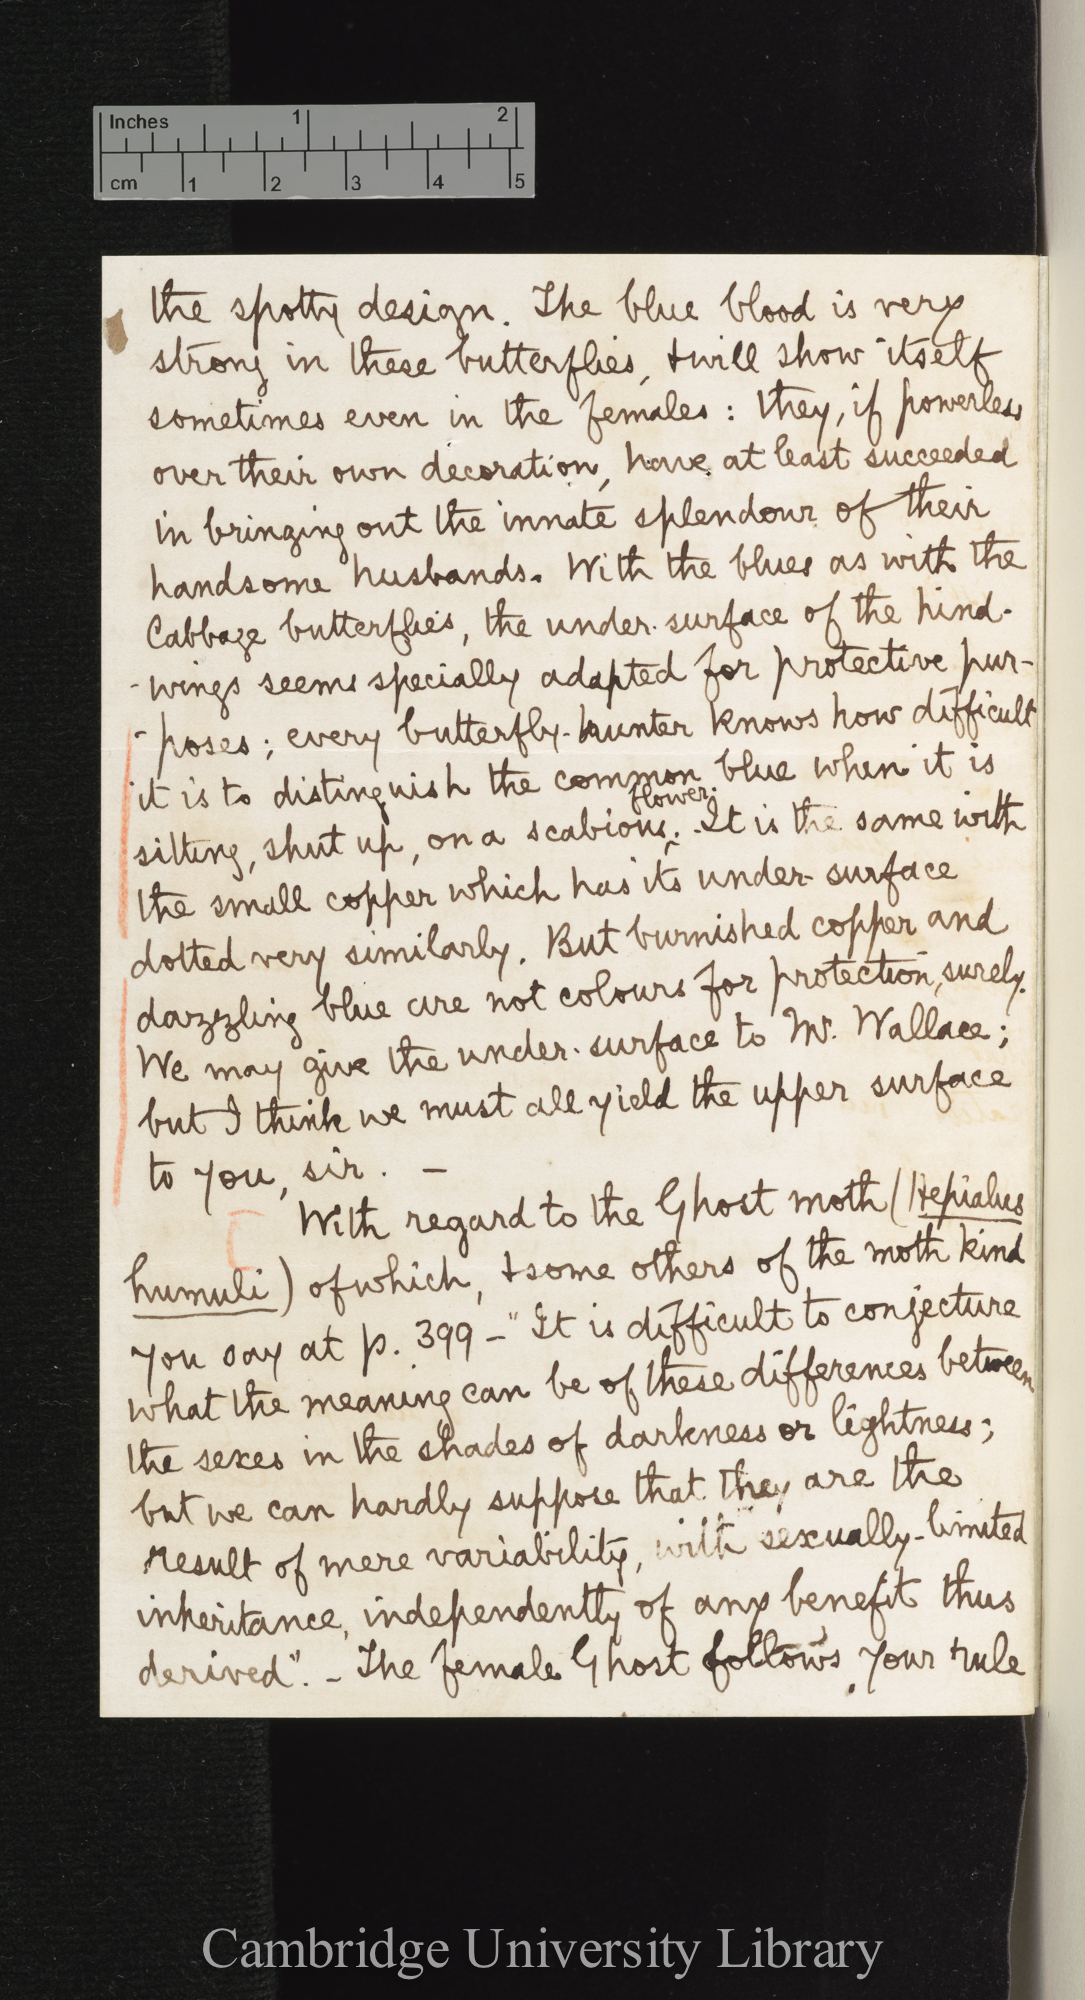 Inches 1 2
cm 1 2 3 4 5
the spotty design. The blue blood is very
strong in these butterflies, & will show itself
sometimes even in the females: they, if powerless
over their own decoration, have at least succeeded
in bringing out the innate splendour of their
handsome husbands. With the blues as with the
Cabbage butterflies, the under-surface of the hind-
-wings seems specially adapted for protective pur-
-poses; every butterfly-hunter knows how difficult
it is to distinguish the common blue when it is
flower.
sitting, shut up, on a scabious^. It is the same with
the small copper which has its under-surface
dotted very similarly. But burnished copper and
dazzling blue are not colours for protection, surely.
We may give the under-surface to Mr. Wallace;
but I think we must all yield the upper surface
to you, sir. —
With regard to the Ghost moth (Hepialus
humuli) of which, & some others of the moth kind
you say at p. 399 – "It is difficult to conjecture
what the meaning can be of these differences between
the sexes in the shades of darkness or lightness;
but we can hardly suppose that they are the
result of mere variability, with sexually-limited
inheritance, independently of any benefit thus
derived". – The female Ghost follows your rule
Cambridge University Library